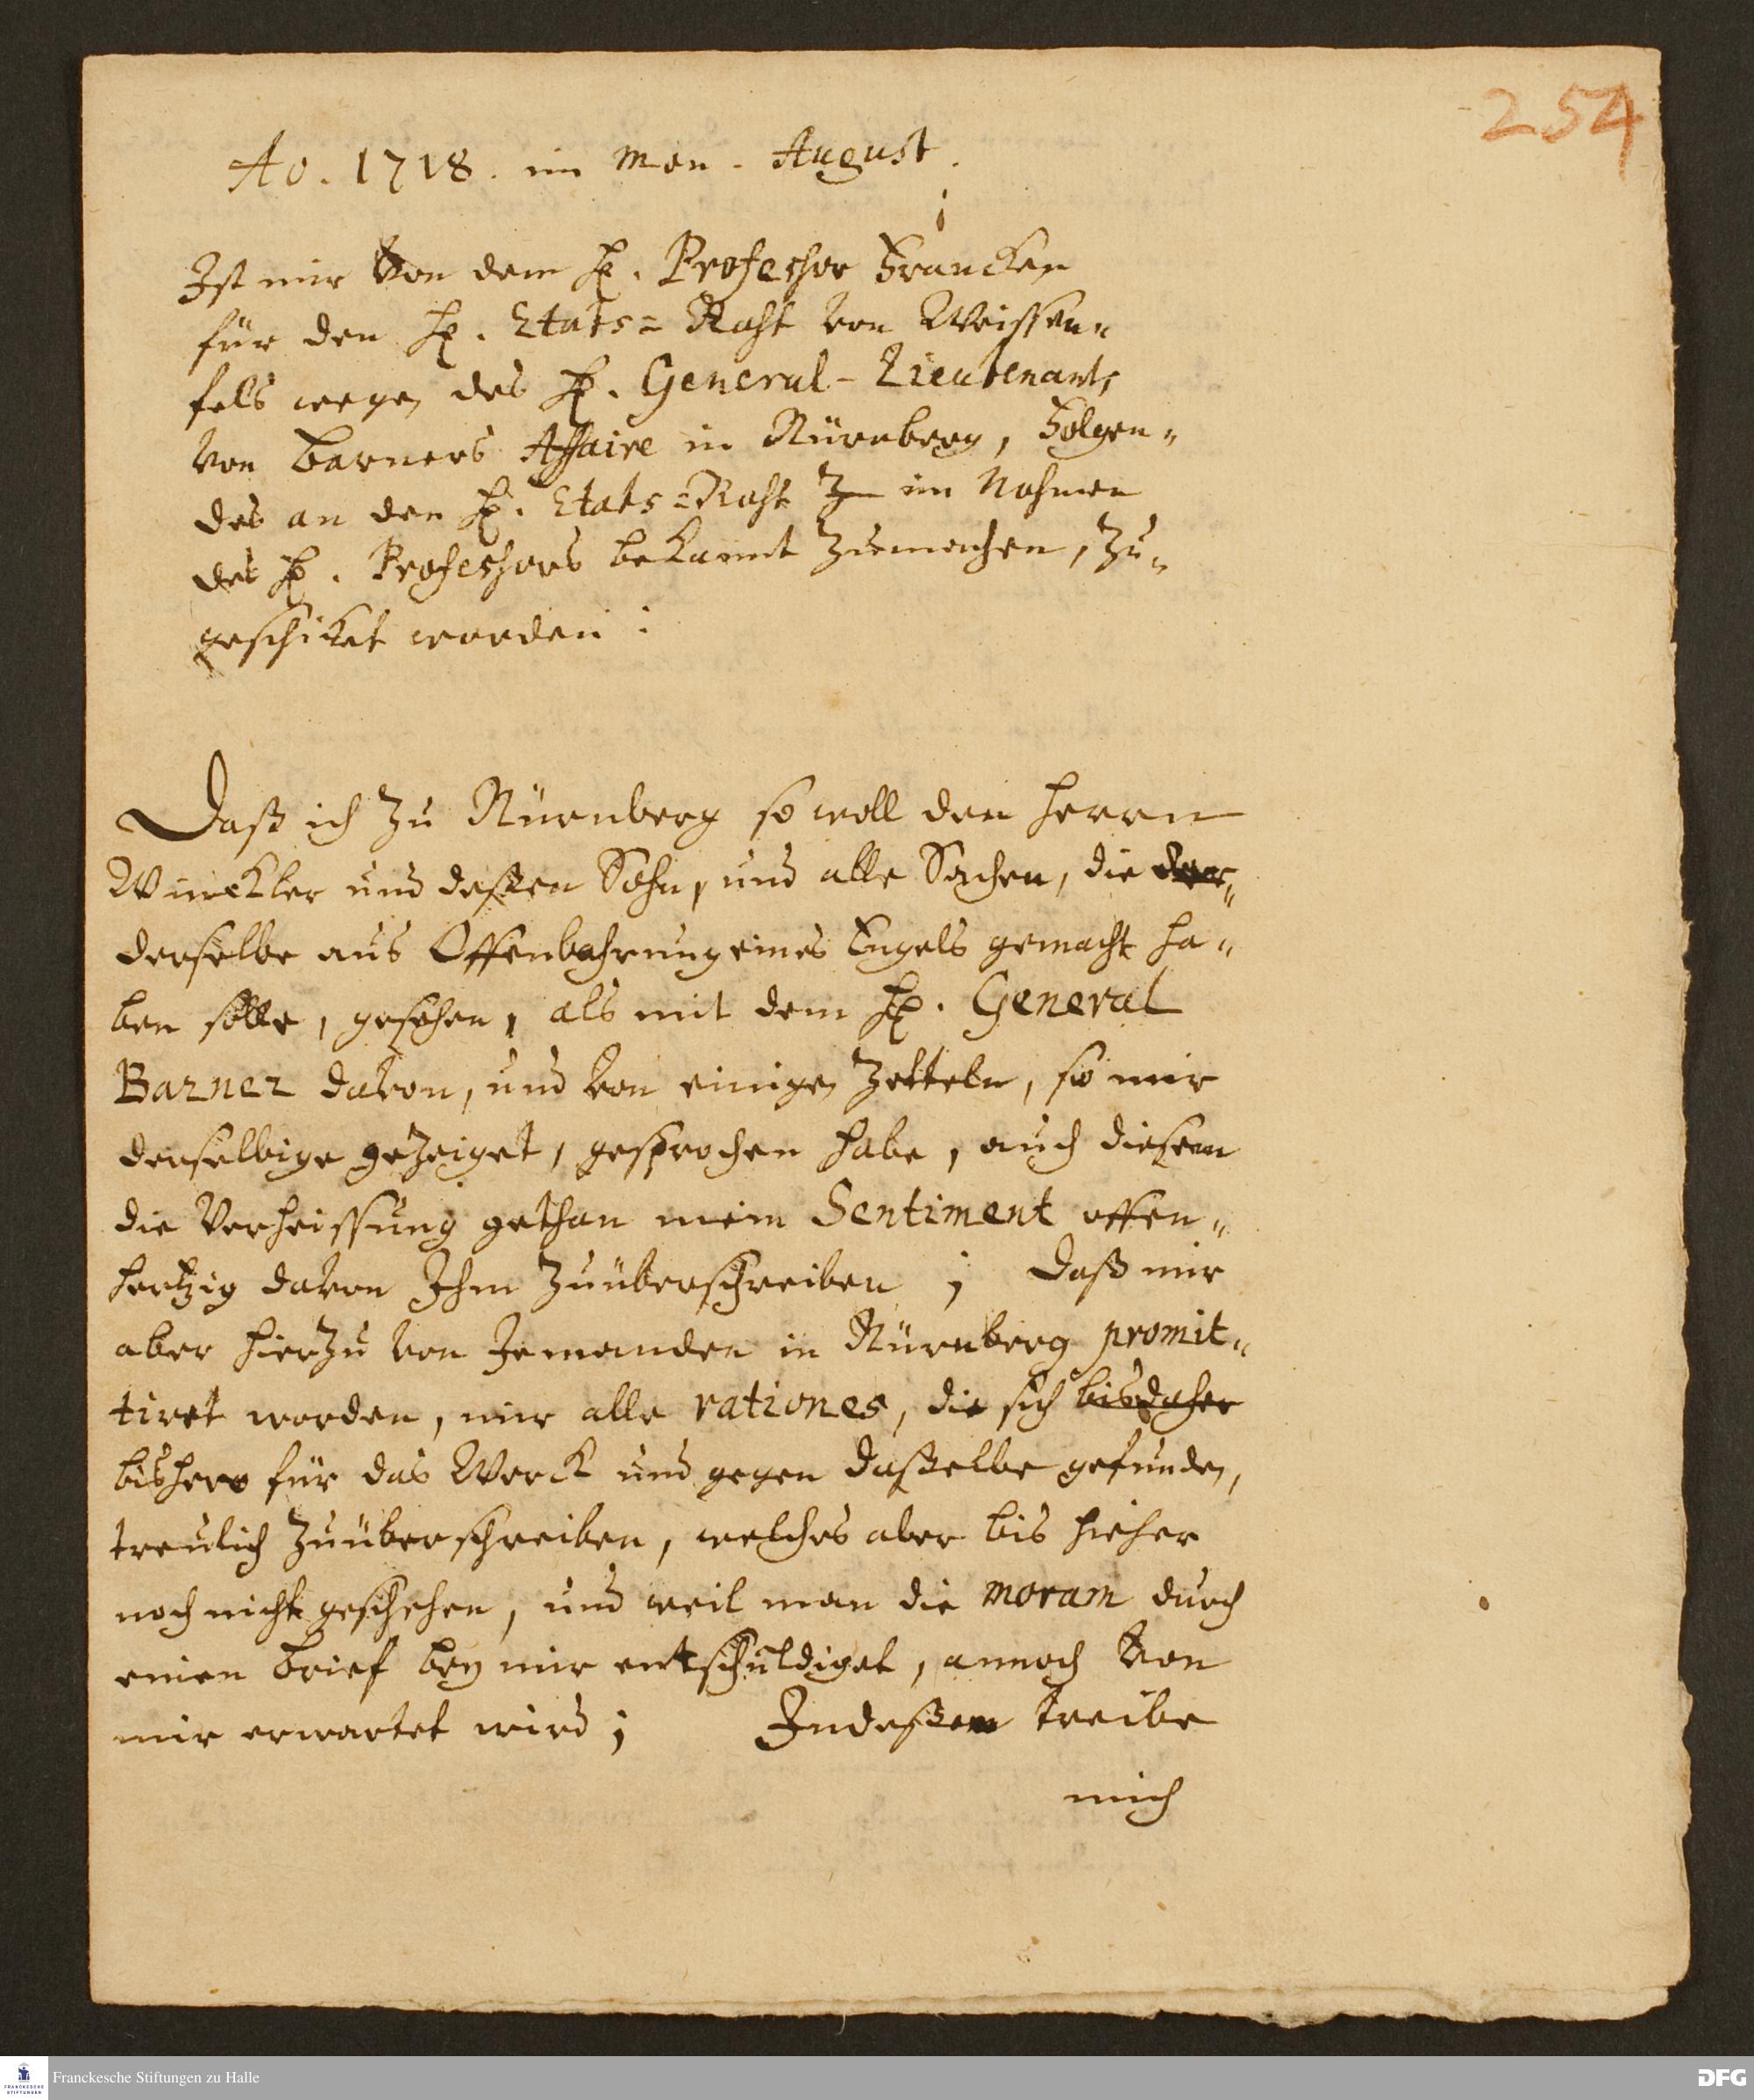 254
Ao. 1718. im Mon. August.
Ist mir von dem H. Professor Francken
für den H. Etats=Raht von Weissen„
fels wegen des H. General-Lieutenants
von Barners Affaire in Nürnberg, Folgen„
des an den H. Etats=Raht im Nahmen
des H. Professors bekannt zumachen, zu„
geschicket worden:
Daß ich zu Nürnberg so woll den Herrn
Winckler und deßen Sohn, und alle Sachen, die
derselbe aus Offenbahrung eines Engels gemacht ha„
ben solle, gesehen, als mit dem H. General
Barner davon, und von einigen Zetteln, so mir
derselbige gezeiget, gesprochen habe, auch diesem
die Verheissung gethan mein Sentiment offen„
hertzig davon Ihm zuüberschreiben; Daß mir
aber hierzu von Jemanden in Nürnberg promit„
tiret worden, mir alle rationes, die sich bisdaher
bishero für das Werck und gegen daßelbe gefunden,
treulich zuüberschreiben, welches aber bis hieher
noch nicht geschehen, und weil man die moram durch
einen Brief bey mir entschuldiget, annoch von
mir erwartet wird; Indeßen treibe
mich
Franckesche Stiftungen zu Halle
FRANCKESCHE STIFTUNGEN
DFG